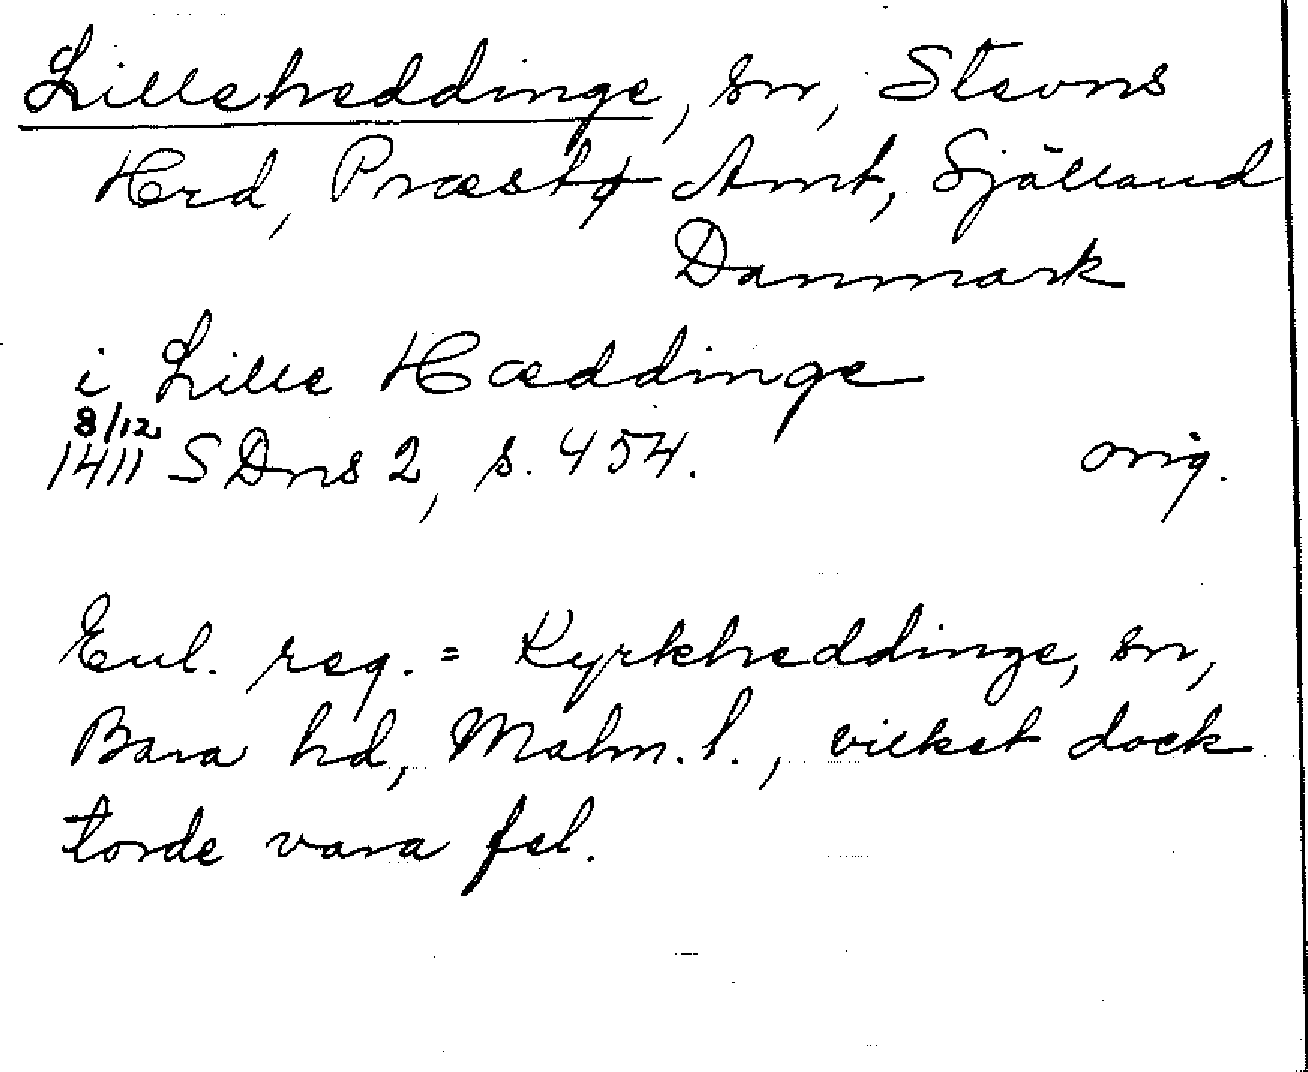 Lilleheddinge, sn, Stevns
Hrd, Præstø Amt, Sjælland
Danmark
i Lille Hæddinge
8/12
1411 SDns 2, s. 454. orig.
Enl. reg. = Kyrkheddinge, sn,
Bara hd, Malm. l., vilket dock
torde vara fel.